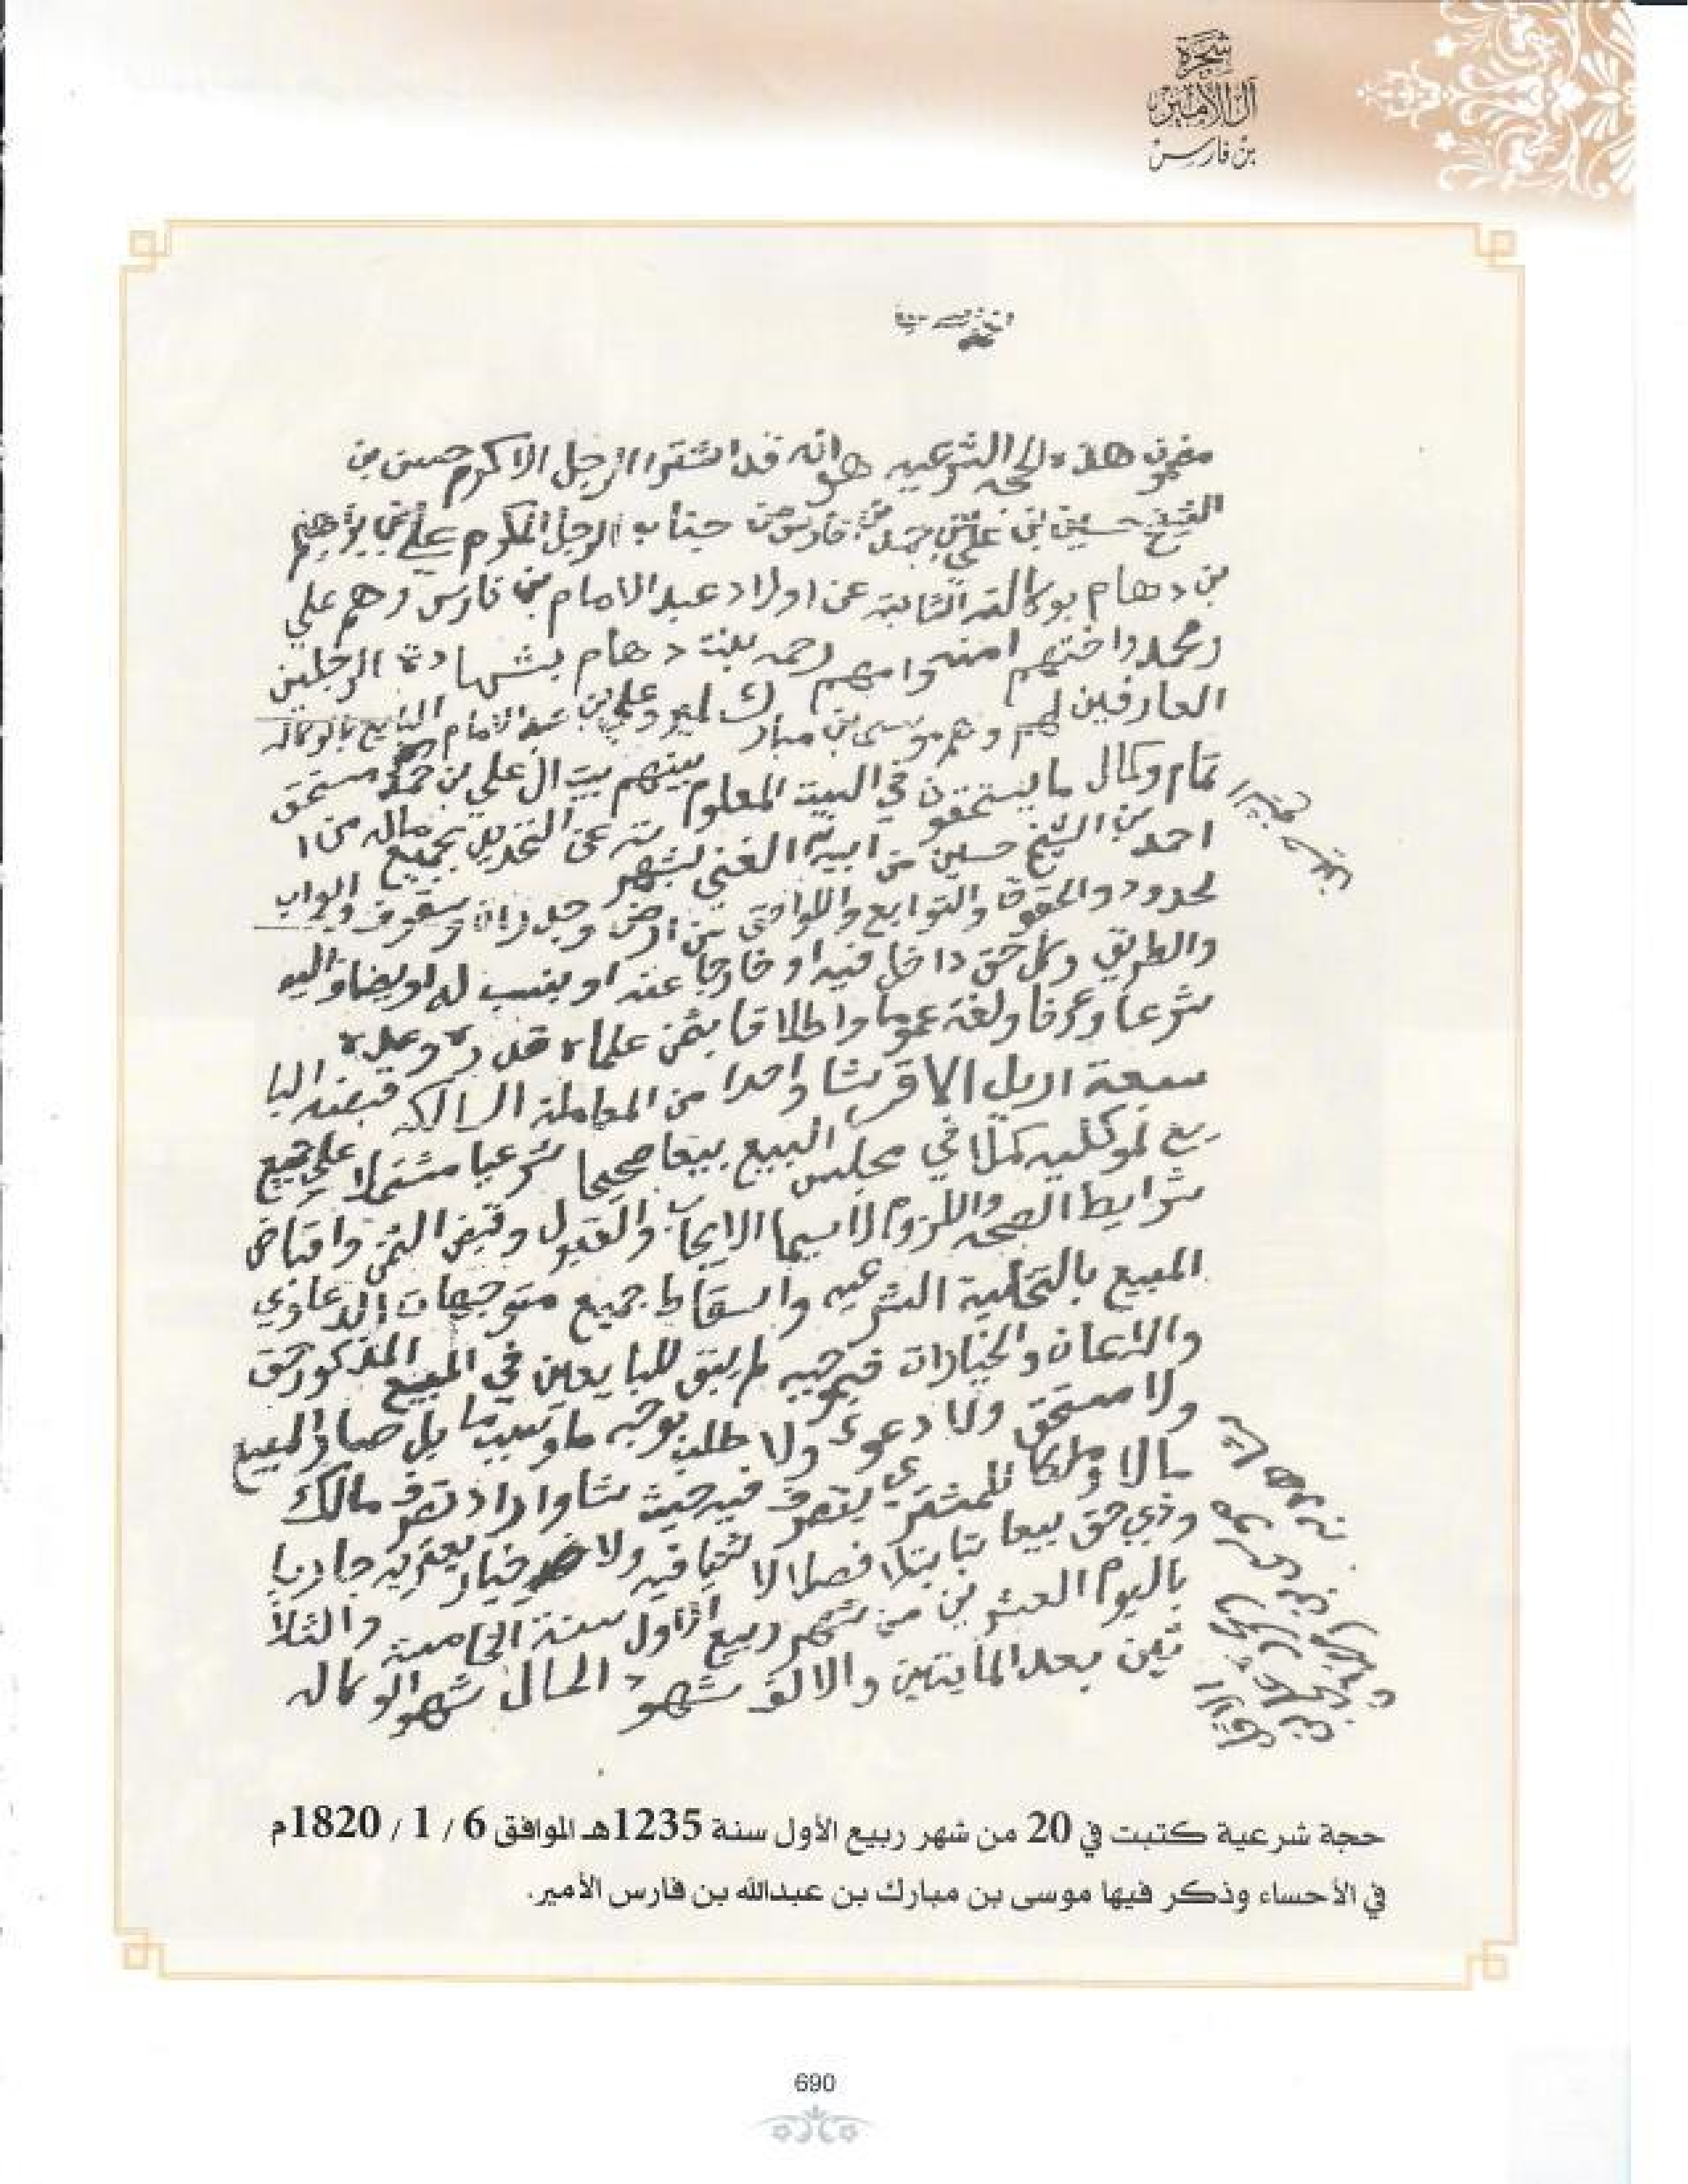 شجرة
آل الأمير
بن فارس
مضمون هذه الحجه الشرعيه هو انه قد اشترا الرجل الاكرم حسين بن
الشيخ حسين بن علي بن حمد بن فارس من جناب الرجل المكرم علي بن ابراهيم
بن دهام بوكالته الثابته عن اولاد عبد الامام بن فارس وهم علي
ومحمد واختهم امنه وامهم رحمه بنت دهام بشهادة الرجلين
العارفين لهم وهم موسى بن مبارك وعلي بن عبد الامام البايع بالوكاله
تمام وكمال ما يستحقون في البيت المعلوم بينهم بيت ال علي بن حمد مستحق
احمد بن الشيخ حسين من ابيه الغني بشهرته عن التحديد بجميع ماله من ا
لحدود والحقوق والتوابع واللواحق من ارض وجدران وسقوف وابواب
والطريق وكل حق داخل فيه او خارجا عنه او ينسب له او يضاف اليه
شرعا وعرفا ولغة عموما واطلاقا بثمن علماه قدره وعده
سبعة اريل الا قرشا واحدا من المعاملة السالكه قبضه البا
يع لموكليه كملا في مجلس البيع بيعا صحيحا شرعيا مشتملا على جميع
شرايط الصحه واللزوم لا سيما الايجاب والقبول وقبض الثمن واقباض
المبيع بالتخلية الشرعيه واسقاط جميع متوجهات الدعاوي
والخيارات فبموجبه لم يبق للبايعين في المبيع المذكور حق
ولا مستحق ولا دعوى ولا طلب بوجه ما وسبب ما بل صار المبيع
مالا وملكا للمشتري يتصرف فيه حيث شا واراد تصرف مالك
وذي حق بيعا بتا بتلا فصلا لا ثنيا فيه ولا خيار يعتريه جاريا
باليوم العشرين من شهر ربيع الاول سنة الخامسة والثلا
ثين بعد المايتين والالف شهود الحال شهود الوكاله
حجة شرعية كتبت في 20 من شهر ربيع الأول سنة 1235هـ الموافق 6 / 1 / 1820م
في الأحساء وذكر فيها موسى بن مبارك بن عبدالله بن فارس الأمير.
690